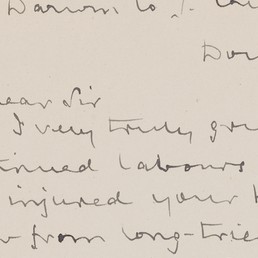 Darwin to J.
Dow
ear Sir
I very truly gr
tinued labours
injured your h
from long-trie